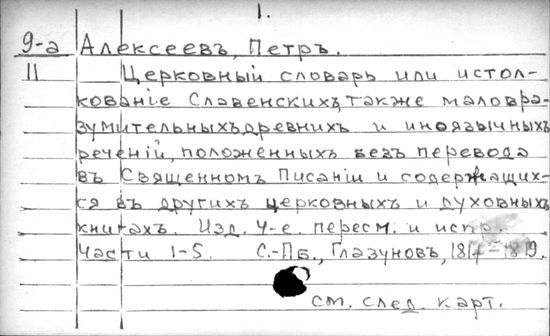 1.
9-а Алексеевъ, Петръ.
11 Церковный словарь или истол-
кованіе Славенскихъ, также маловра-
зумительныхъ древнихъ и иноязычныхъ
реченій, положенныхъ безъ перевода
въ Священномъ Писаніи и содержащих-
ся въ другихъ церковныхъ и духовныхъ
книгахъ. Изд. 4-е. пересм. и испр.
Части 1-5. С.-Пб., Глазуновъ, 1817-1819.
см. след. карт.